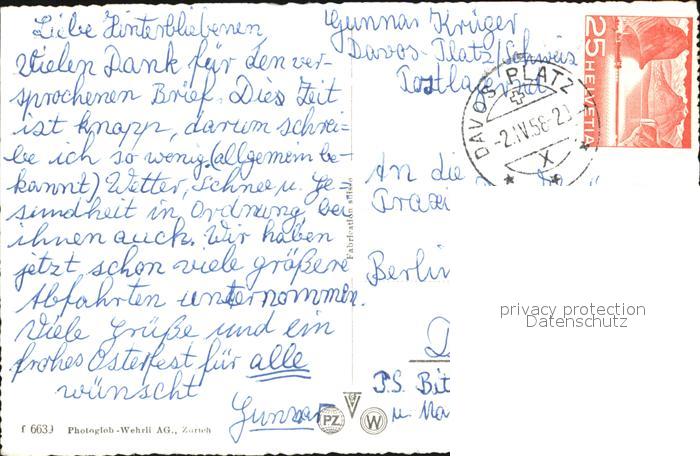 Liebe Hinterbliebenen,
Vielen Dank für den ver-
sprochenen Brief. Dies Zeit
ist knapp, darum schrei=
be ich so wenig. (allgemein be-
kannt) Wetter, Schnee u. Ge=
sundheit in Ordnung, bei
ihnen auch. Wir haben
jetzt schon viele größere
Abfahrten unternommen.
Viele Grüße und ein
frohes Osterfest für alle
wünscht
Gunnar
f 6633 Photoglob-Wehrli AG., Zürich
PZ
W
Fabrication suisse
Gunnar Krüger
Davos-Platz/Schweiz
Postlagernd
25 HELVETIA
DAVOS PLATZ
-2.IV.58-20
X
An die
Praxi
Berlin
P.S. Bit
u. Ma
privacy protection
Datenschutz